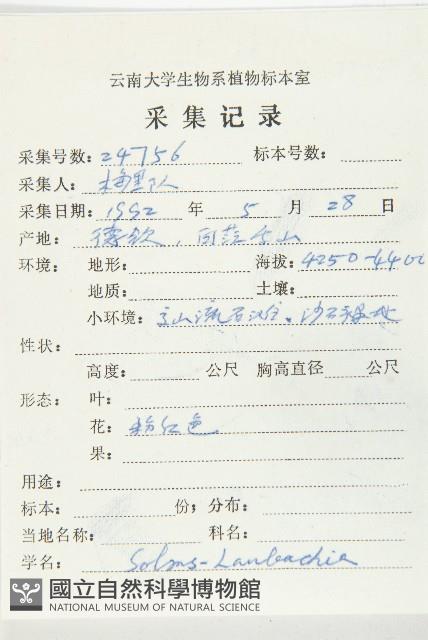 云南大学生物系植物标本室
采集记录
采集号数：24756 标本号数：
采集人：梅里队
采集日期：1992 年 5 月 28 日
产地：德钦，白茫雪山
环境：地形： 海拔：4250-4400
地质： 土壤：
小环境：高山流石滩、沙石
性状：
高度： 公尺 胸高直径 公尺
形态：叶：
花：粉红色
果：
用途：
标本： 份；分布：
当地名称： 科名：
学名：Solms-Laubachia
國立自然科學博物館
NATIONAL MUSEUM OF NATURAL SCIENCE